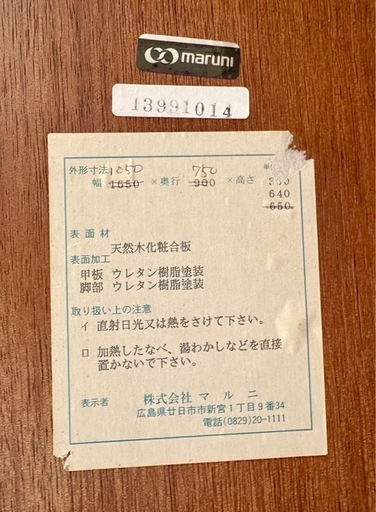 maruni
13991014
外形寸法 1050 750
幅 1650 × 奥行 900 × 高さ 360
640
650
表面材
天然木化粧合板
表面加工
甲板 ウレタン樹脂塗装
脚部 ウレタン樹脂塗装
取り扱い上の注意
イ 直射日光又は熱をさけて下さい。
ロ 加熱したなべ、湯わかしなどを直接
置かないで下さい。
表示者 株式会社 マルニ
広島県廿日市市新宮1丁目9番34
電話(0829)20-1111